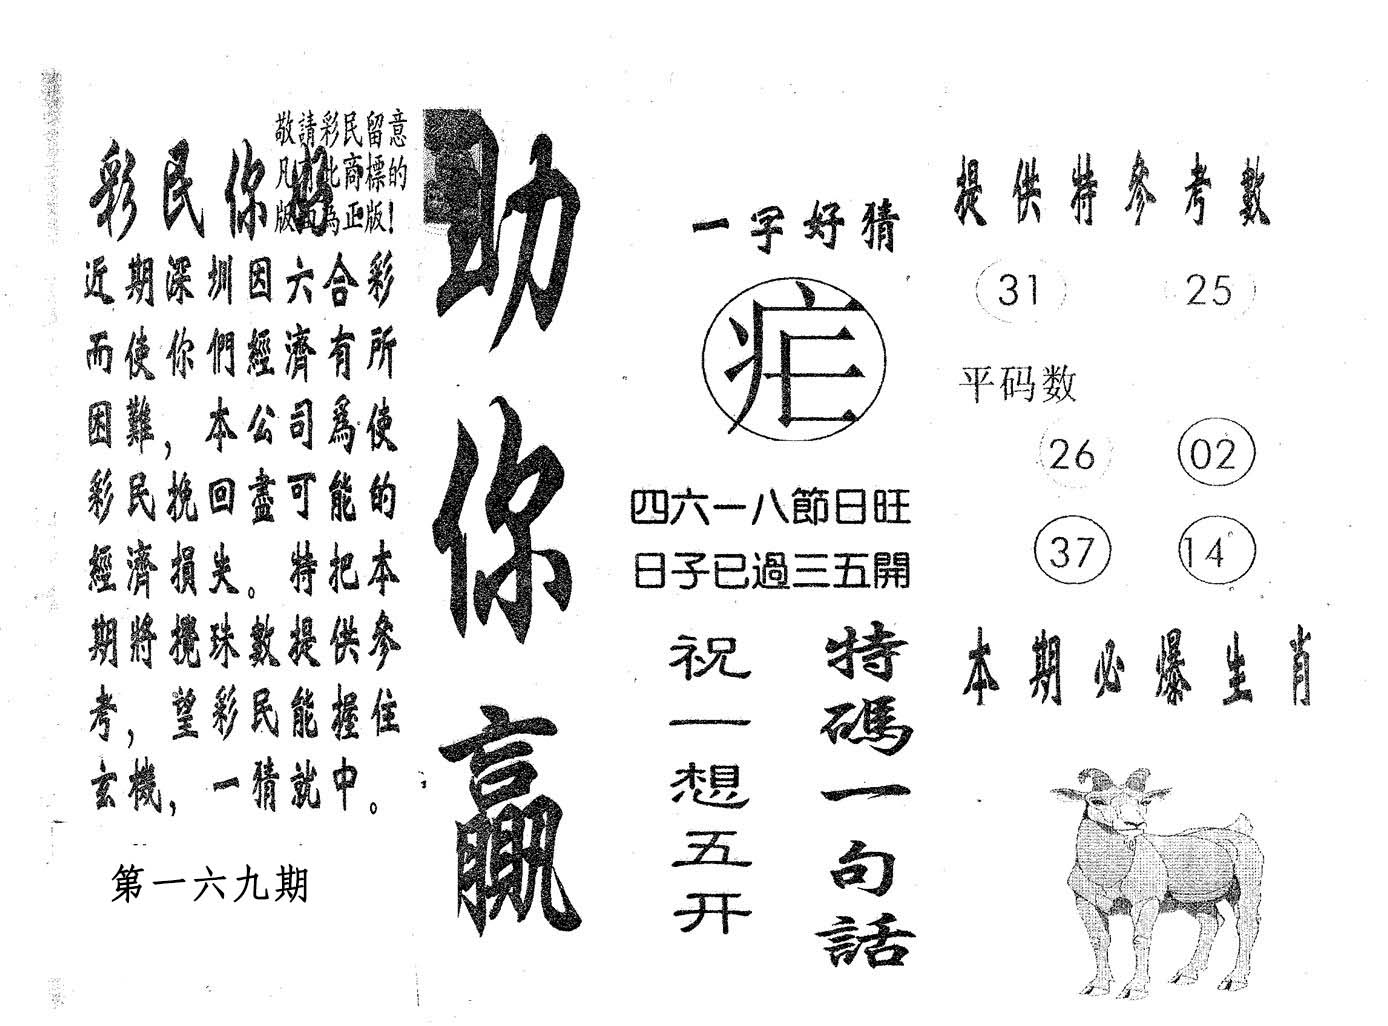 敬請彩民留意
凡有此商標的
版面為正版！
彩民你好
近期深圳因六合彩
而使你們經濟有所
困難，本公司爲使
彩民挽回盡可能的
經濟損失。特把本
期將攪珠數提供參
考，望彩民能握住
玄機，一猜就中。
第一六九期
助你贏
一字好猜
疟
四六一八節日旺
日子已過三五開
特碼一句話
祝一想五开
提供特參考數
31 25
平码数
26 02
37 14
本期必爆生肖